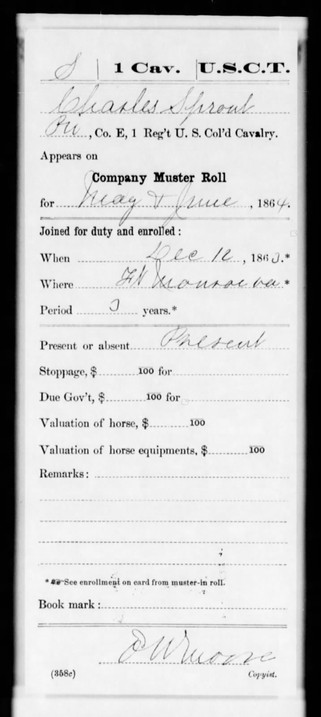 S | 1 Cav. | U.S.C.T.
Charles Sprout
Pvt, Co. E, 1 Reg't U. S. Col'd Cavalry.
Appears on
Company Muster Roll
for May & June, 1864.
Joined for duty and enrolled:
When Dec 12, 1863.*
Where Ft Monroe Va*
Period 3 years.*
Present or absent Present
Stoppage, $ 100 for
Due Gov't, $ 100 for
Valuation of horse, $ 100
Valuation of horse equipments, $ 100
Remarks:
* See enrollment on card from muster-in roll.
Book mark:
E W Moore
(358c) Copyist.